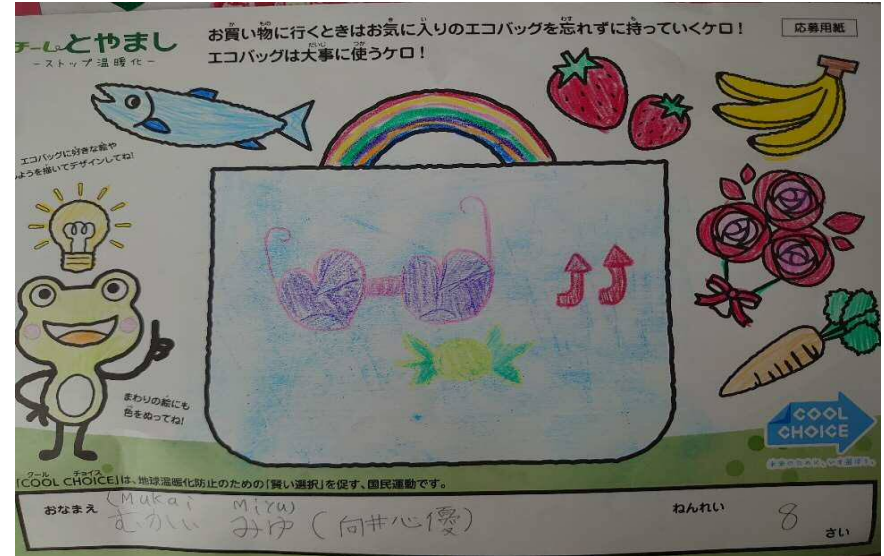 チームとやまし
-ストップ温暖化-
お買い物に行くときはお気に入りのエコバッグを忘れずに持っていくケロ!
エコバッグは大事に使うケロ!
応募用紙
エコバッグに好きな絵や
もようを描いてデザインしてね!
まわりの絵にも
色をぬってね!
COOL
CHOICE
未来のために、いま選ぼう。
「COOL CHOICE」は、地球温暖化防止のための「賢い選択」を促す、国民運動です。
(Mukai Miyu)
おなまえ むかい みゆ (向井心優)
ねんれい 8 さい